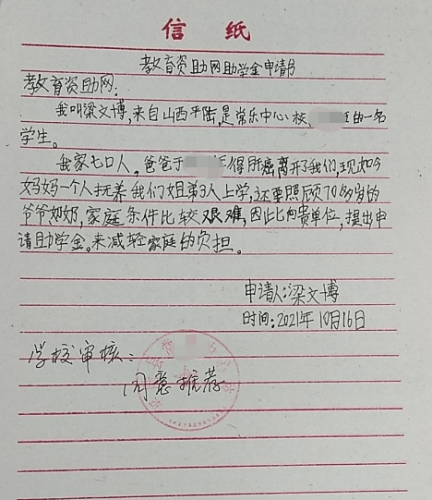 信纸
教育资助网助学金申请书
教育资助网:
我叫梁文博,来自山西平陆,是常乐中心校,班的一名
学生。
我家七口人。爸爸于年得肝癌离开了我们,现如今
妈妈一个人扶养我们姐弟3人上学,还要照顾70多岁的
爷爷奶奶,家庭条件比较艰难,因此向贵单位,提出申
请助学金。来减轻家庭的负担。
申请人:梁文博
时间:2021年10月16日
学校审核:
同意推荐